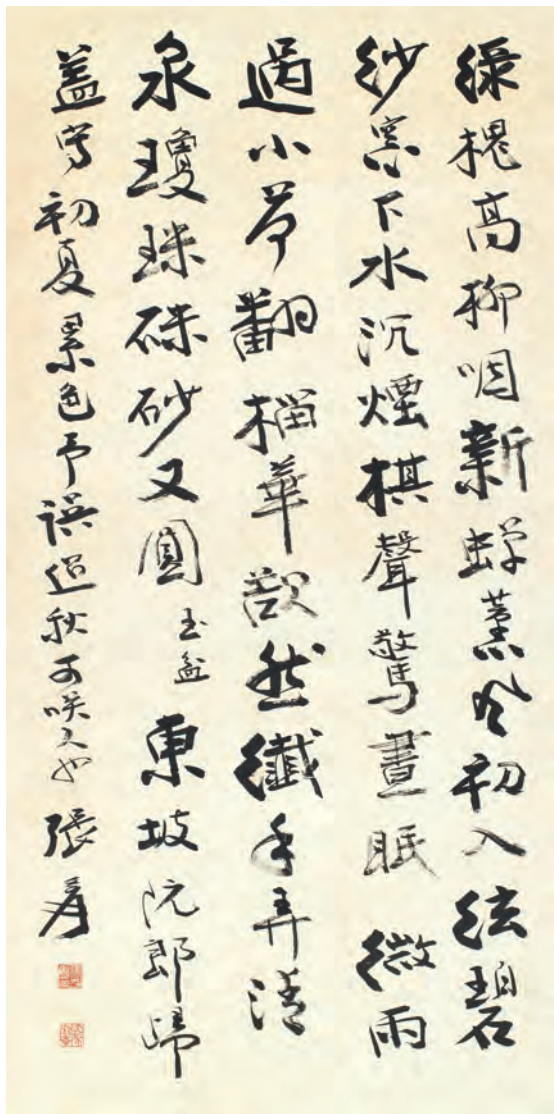 綠槐高柳咽新蟬薰風初入弦碧
紗窓下水沉煙棋聲驚晝眠 微雨
過小荷翻榴華然纖手弄清
泉瓊珠硃砂又圓 玉盆 東坡阮郎歸
蓋寫初夏景色予誤秋可咲也 張爰